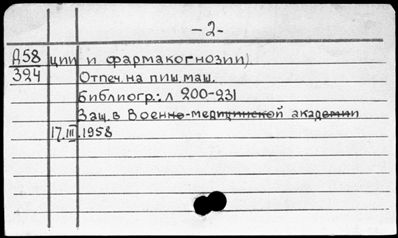 -2-
Д58 ции и фармакогнозии).
324 Отпеч. на пиш. маш.
Библиогр.: л 200-231
Защ. в Военно-медицинской академии
17.III.1958